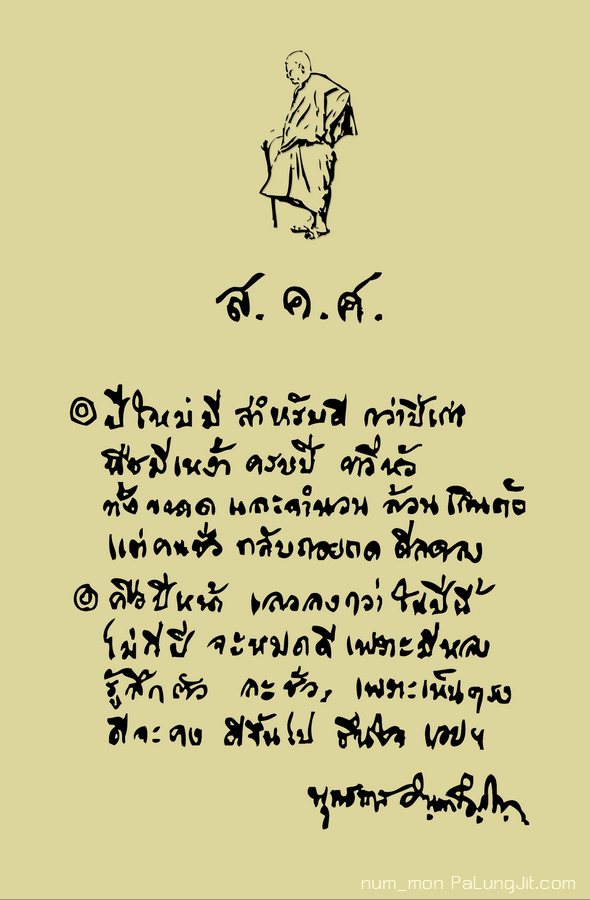 ส. ค. ศ.
๏ ปีใหม่มี สำหรับดี กว่าปีเก่า
พืชมีเหง้า ครบปี ทวีหัว
ทั้งขนาด และจำนวน ล้วน
แต่คนชั่ว กลับถอยถด ดีลดลง
๏ คือปีหน้า เลวลงกว่า ในปีนี้
ไม่กี่ปี จะหมดดี เพราะมีหลง
รู้สึกตัว ละชั่ว, เพราะเห็นตรง
ดีจะคง ดีขึ้นไป ชื่นใจ เอยฯ
พุทธทาส อินทปัญโญ
num_mon PaLungJit.com